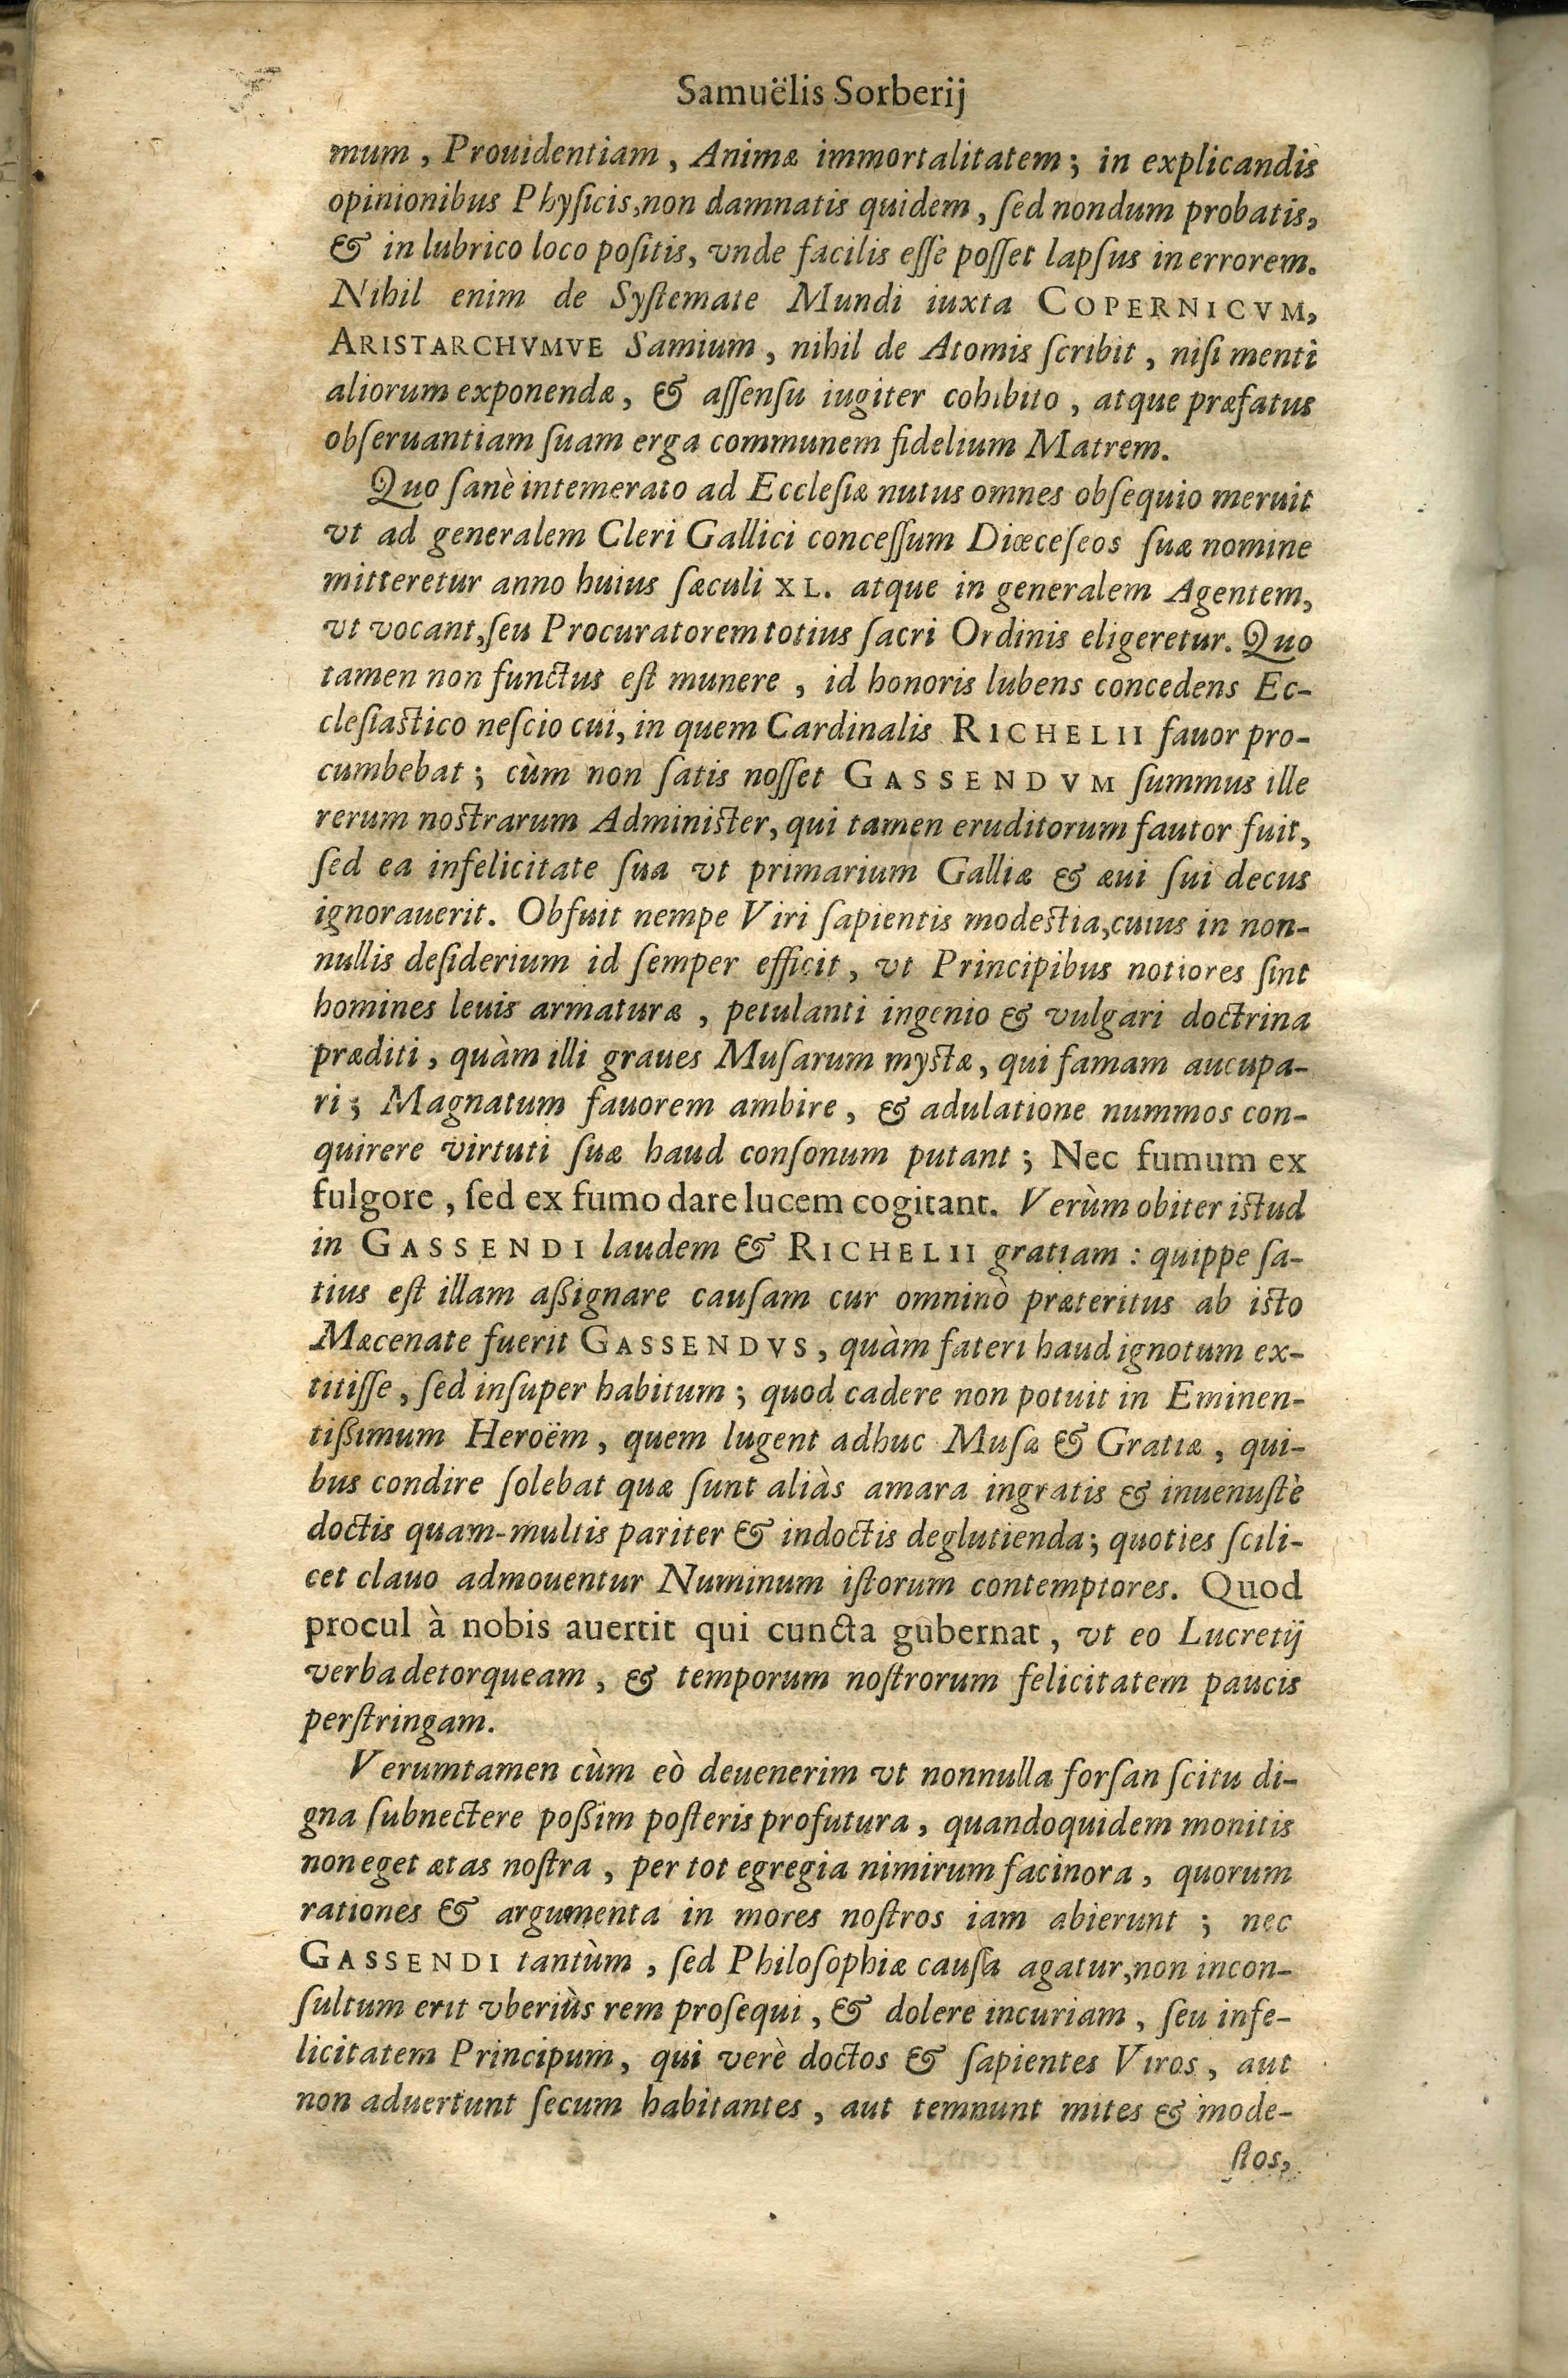 Samuëlis Sorberij
mum, Prouidentiam, Animæ immortalitatem; in explicandis
opinionibus Physicis, non damnatis quidem, sed nondum probatis,
& in lubrico loco positis, vnde facilis esse posset lapsus in errorem.
Nihil enim de Systemate Mundi iuxta COPERNICVM,
ARISTARCHVMVE Samium, nihil de Atomis scribit, nisi menti
aliorum exponendæ, & assensu iugiter cohibito, atque præfatus
obseruantiam suam erga communem fidelium Matrem.
Quo sanè intemerato ad Ecclesiæ nutus omnes obsequio meruit
vt ad generalem Cleri Gallici concessum Diœceseos suæ nomine
mitteretur anno huius sæculi XL. atque in generalem Agentem,
vt vocant, seu Procuratorem totius sacri Ordinis eligeretur. Quo
tamen non functus est munere, id honoris lubens concedens Ec-
clesiastico nescio cui, in quem Cardinalis RICHELII fauor pro-
cumbebat; cùm non satis nosset GASSENDVM summus ille
rerum nostrarum Administer, qui tamen eruditorum fautor fuit,
sed ea infelicitate sua vt primarium Galliæ & æui sui decus
ignorauerit. Obfuit nempe Viri sapientis modestia, cuius in non-
nullis desiderium id semper efficit, vt Principibus notiores sint
homines leuis armaturæ, petulanti ingenio & vulgari doctrina
præditi, quàm illi graues Musarum mystæ, qui famam aucupa-
ri; Magnatum fauorem ambire, & adulatione nummos con-
quirere virtuti suæ haud consonum putant; Nec fumum ex
fulgore, sed ex fumo dare lucem cogitant. Verùm obiter istud
in GASSENDI laudem & RICHELII gratiam: quippe sa-
tius est illam aßignare causam cur omninò præteritus ab isto
Mæcenate fuerit GASSENDVS, quàm fateri haud ignotum ex-
titisse, sed insuper habitum; quod cadere non potuit in Eminen-
tißimum Heroëm, quem lugent adhuc Musæ & Gratiæ, qui-
bus condire solebat quæ sunt aliàs amara ingratis & inuenustè
doctis quam-multis pariter & indoctis deglutienda; quoties scili-
cet clauo admouentur Numinum istorum contemptores. Quod
procul à nobis auertit qui cuncta gubernat, vt eo Lucretij
verba detorqueam, & temporum nostrorum felicitatem paucis
perstringam.
Verumtamen cùm eò deuenerim vt nonnulla forsan scitu di-
gna subnectere poßim posteris profutura, quandoquidem monitis
non eget ætas nostra, per tot egregia nimirum facinora, quorum
rationes & argumenta in mores nostros iam abierunt; nec
GASSENDI tantùm, sed Philosophiæ causa agatur, non incon-
sultum erit vberiùs rem prosequi, & dolere incuriam, seu infe-
licitatem Principum, qui verè doctos & sapientes Viros, aut
non aduertunt secum habitantes, aut temnunt mites & mode-
stos,